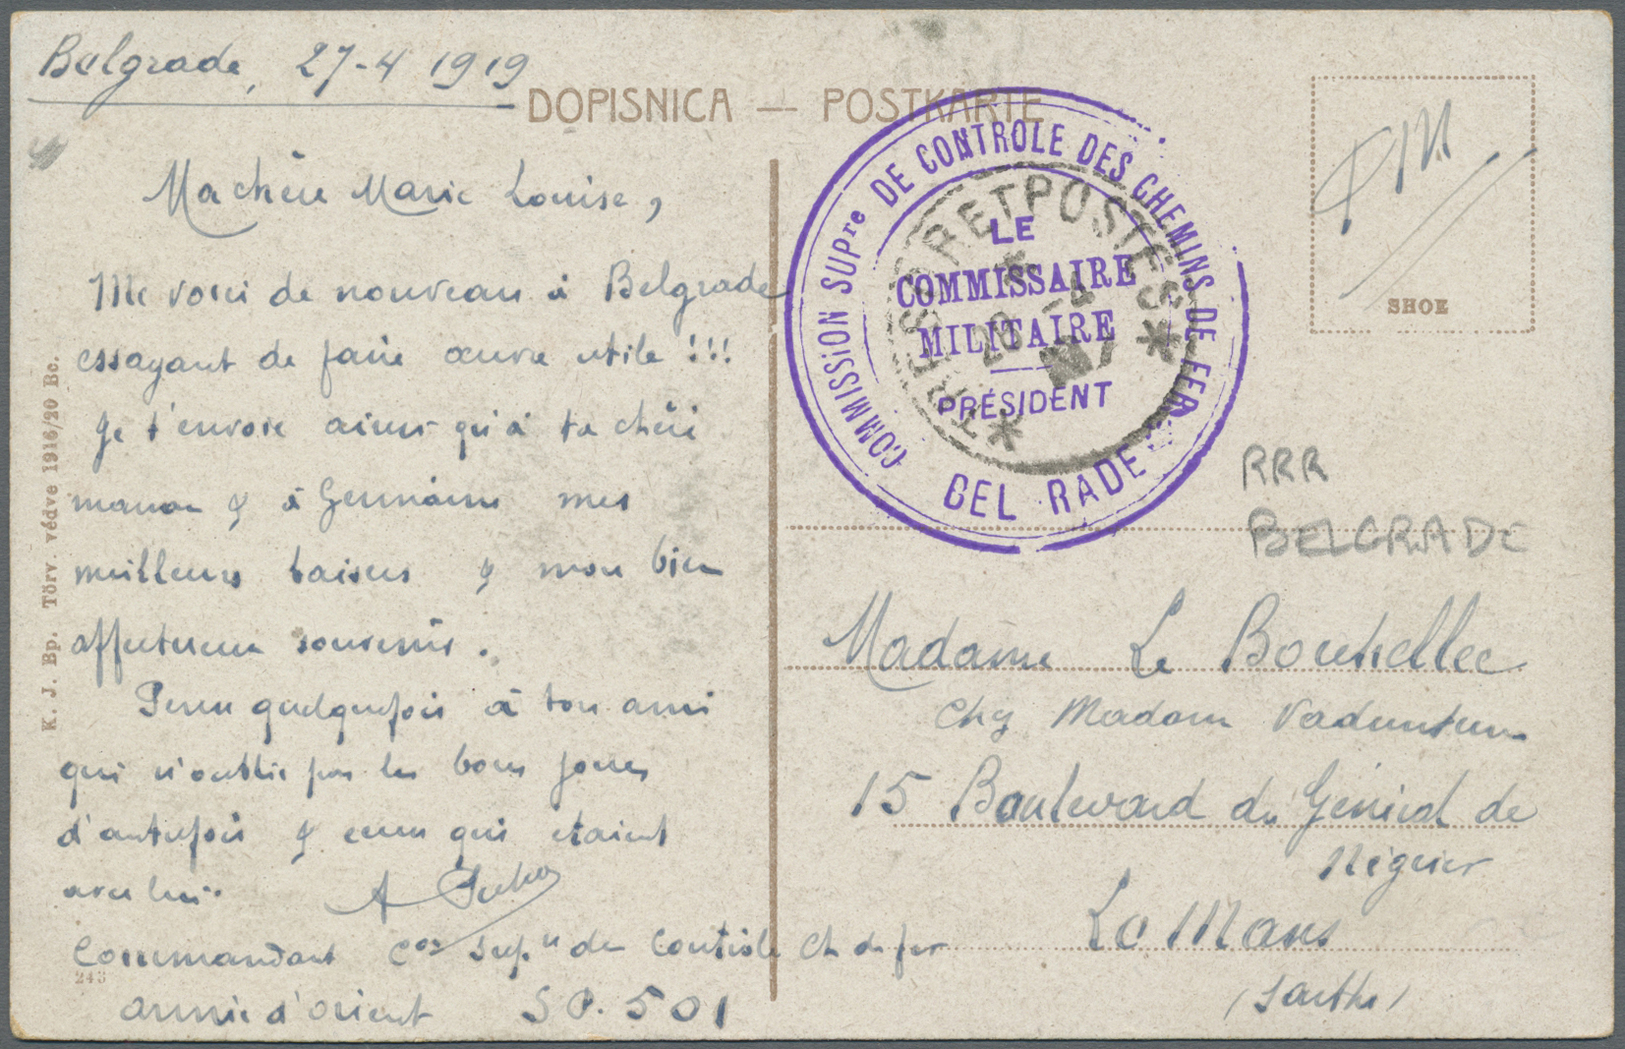 Belgrade, 27-4 1919
DOPISNICA — POSTKARTE
Ma chère Marie Louise,
Me voici de nouveau à Belgrade
essayant de faire œuvre utile !!!
Je t'envoie ainsi qu'à ta chère
maman & à Germaine mes
meilleurs baisers & mon bien
affectueux souvenir.
Pense quelquefois à ton ami
qui n'oublie pas les bons jours
d'autrefois & ceux qui étaient
avec lui.
A
Commandant Con Supre de Controle Ch de fer
armée d'orient S.P. 501
K. J. Bp. Törv. védve 1916/20 Bc.
243
COMMISSION SUPre DE CONTROLE DES CHEMINS DE FER
LE
COMMISSAIRE
MILITAIRE
PRÉSIDENT
BEL RADE
TRESOR ET POSTES
28 -4
FM
SHOE
RRR
BELGRADE
Madame Le
Chez Madame
15 Boulevard du Général de
Négrier
Le Mans
(Sarthe)